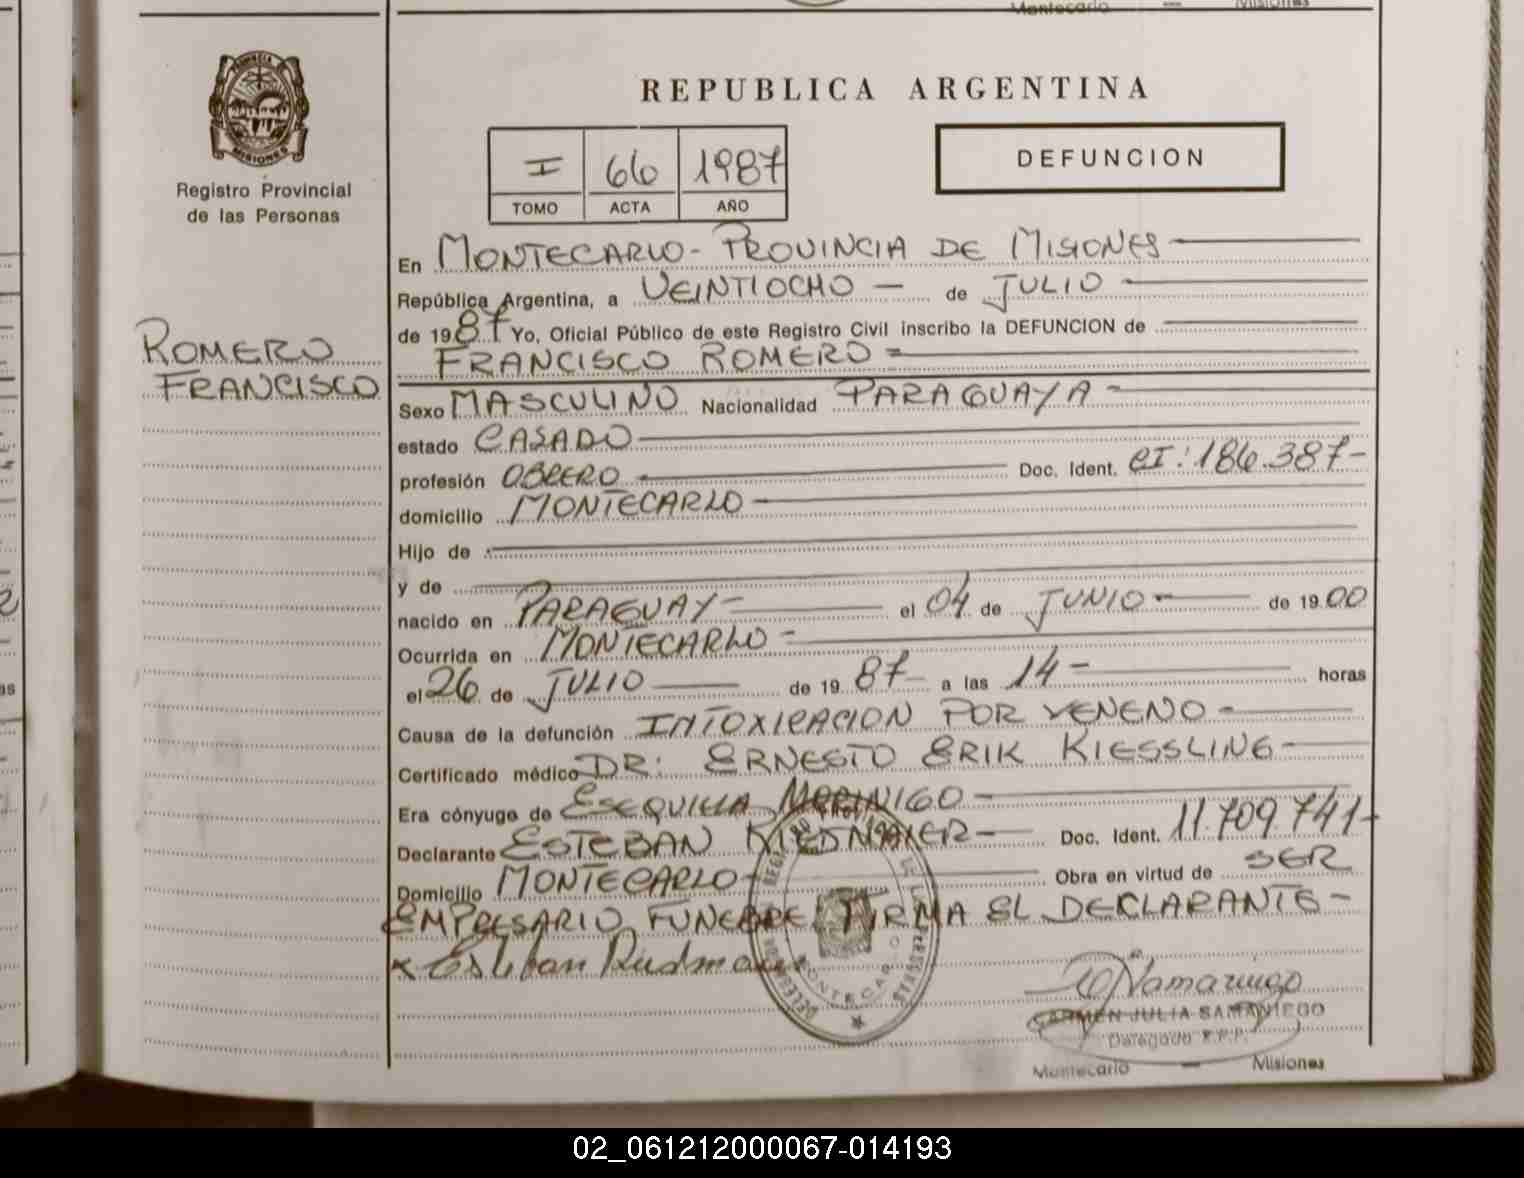 Montecarlo — Misiones
REPUBLICA ARGENTINA
PROVINCIA DE
MISIONES
Registro Provincial
de las Personas
I 66 1987
TOMO ACTA AÑO
DEFUNCION
En MONTECARLO - PROVINCIA DE MISIONES
República Argentina, a VEINTIOCHO — de JULIO
de 1987 Yo, Oficial Público de este Registro Civil inscribo la DEFUNCION de
ROMERO
FRANCISCO
FRANCISCO ROMERO =
Sexo MASCULINO Nacionalidad PARAGUAYA -
estado CASADO
profesión OBRERO — Doc. Ident. CI: 186.387-
domicilio MONTECARLO
Hijo de
y de
nacido en PARAGUAY - el 04 de JUNIO - de 1900
Ocurrida en MONTECARLO -
el 26 de JULIO — de 1987 a las 14 - horas
Causa de la defunción INTOXICACION POR VENENO -
Certificado médico DR: ERNESTO ERIK KIESSLING -
Era cónyuge de ESEQUIELA MERINIGO -
Declarante ESTEBAN RIEDMAIER - Doc. Ident. 11.709.741-
Domicilio MONTECARLO - Obra en virtud de SER
EMPRESARIO FUNEBRE FIRMA EL DECLARANTE -
x Esteban Riedmaier
CARMEN JULIA SAMANIEGO
Delegado R.P.P.
Montecarlo — Misiones
02_061212000067-014193